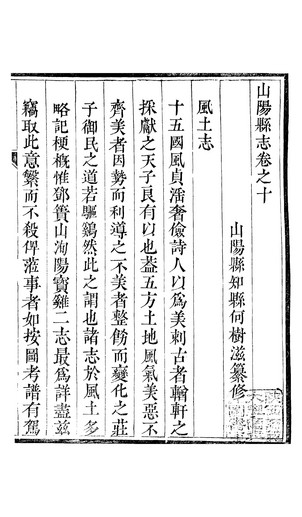 山陽縣志卷之十
山陽縣知縣何樹滋纂修
風土志
十五國風貞淫奢儉詩人以為美刺古者輶軒之
採獻之天子良有以也葢五方土地風氣美惡不
齊美者因勢而利導之不美者整飭而變化之莊
子御民之道若驅雞然此之謂也諸志於風土多
略記梗概惟鄧賛山洵陽寶雞二志最為詳盡兹
竊取此意繁而不殺俾涖事者如按圖考譜有駕